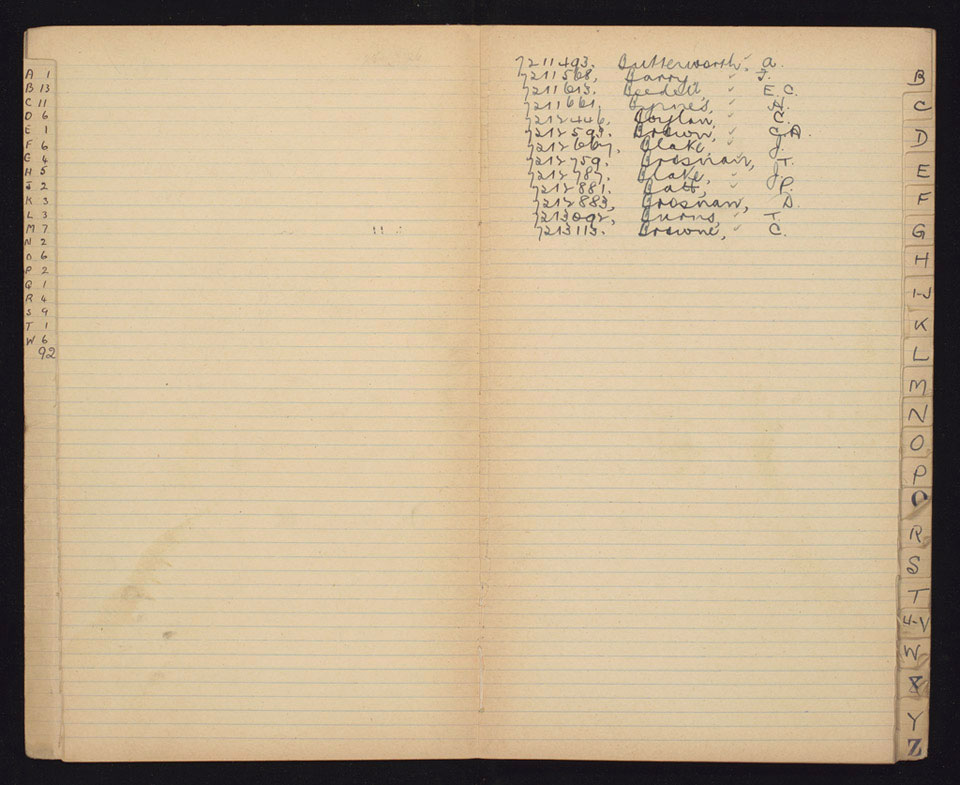 A 1
B 13
C 11
D 6
E 1
F 6
G 4
H 5
J 2
K 3
L 3
M 7
N 2
O 6
P 2
Q 1
R 4
S 9
T 1
W 6
92
7211493. Butterworth. ✓ A.
7211568, Barry ✓ J.
7211613. Beedell ✓ E.C.
7211661, Byrnes, ✓ H.
7212446, Boylan ✓ C.
7212593. Brown, ✓ C.A.
7212667, Blake, ✓ J.
7212759. Brosnan, ✓ T.
7212787. Blake, ✓ J.
7212881. Batt, ✓ P.
7212883, Brosnan, D.
7213092, Burns, ✓ T.
7213113. Browne, ✓ C.
B
C
D
E
F
G
H
I-J
K
L
M
N
O
P
Q
R
S
T
U-V
W
X
Y
Z